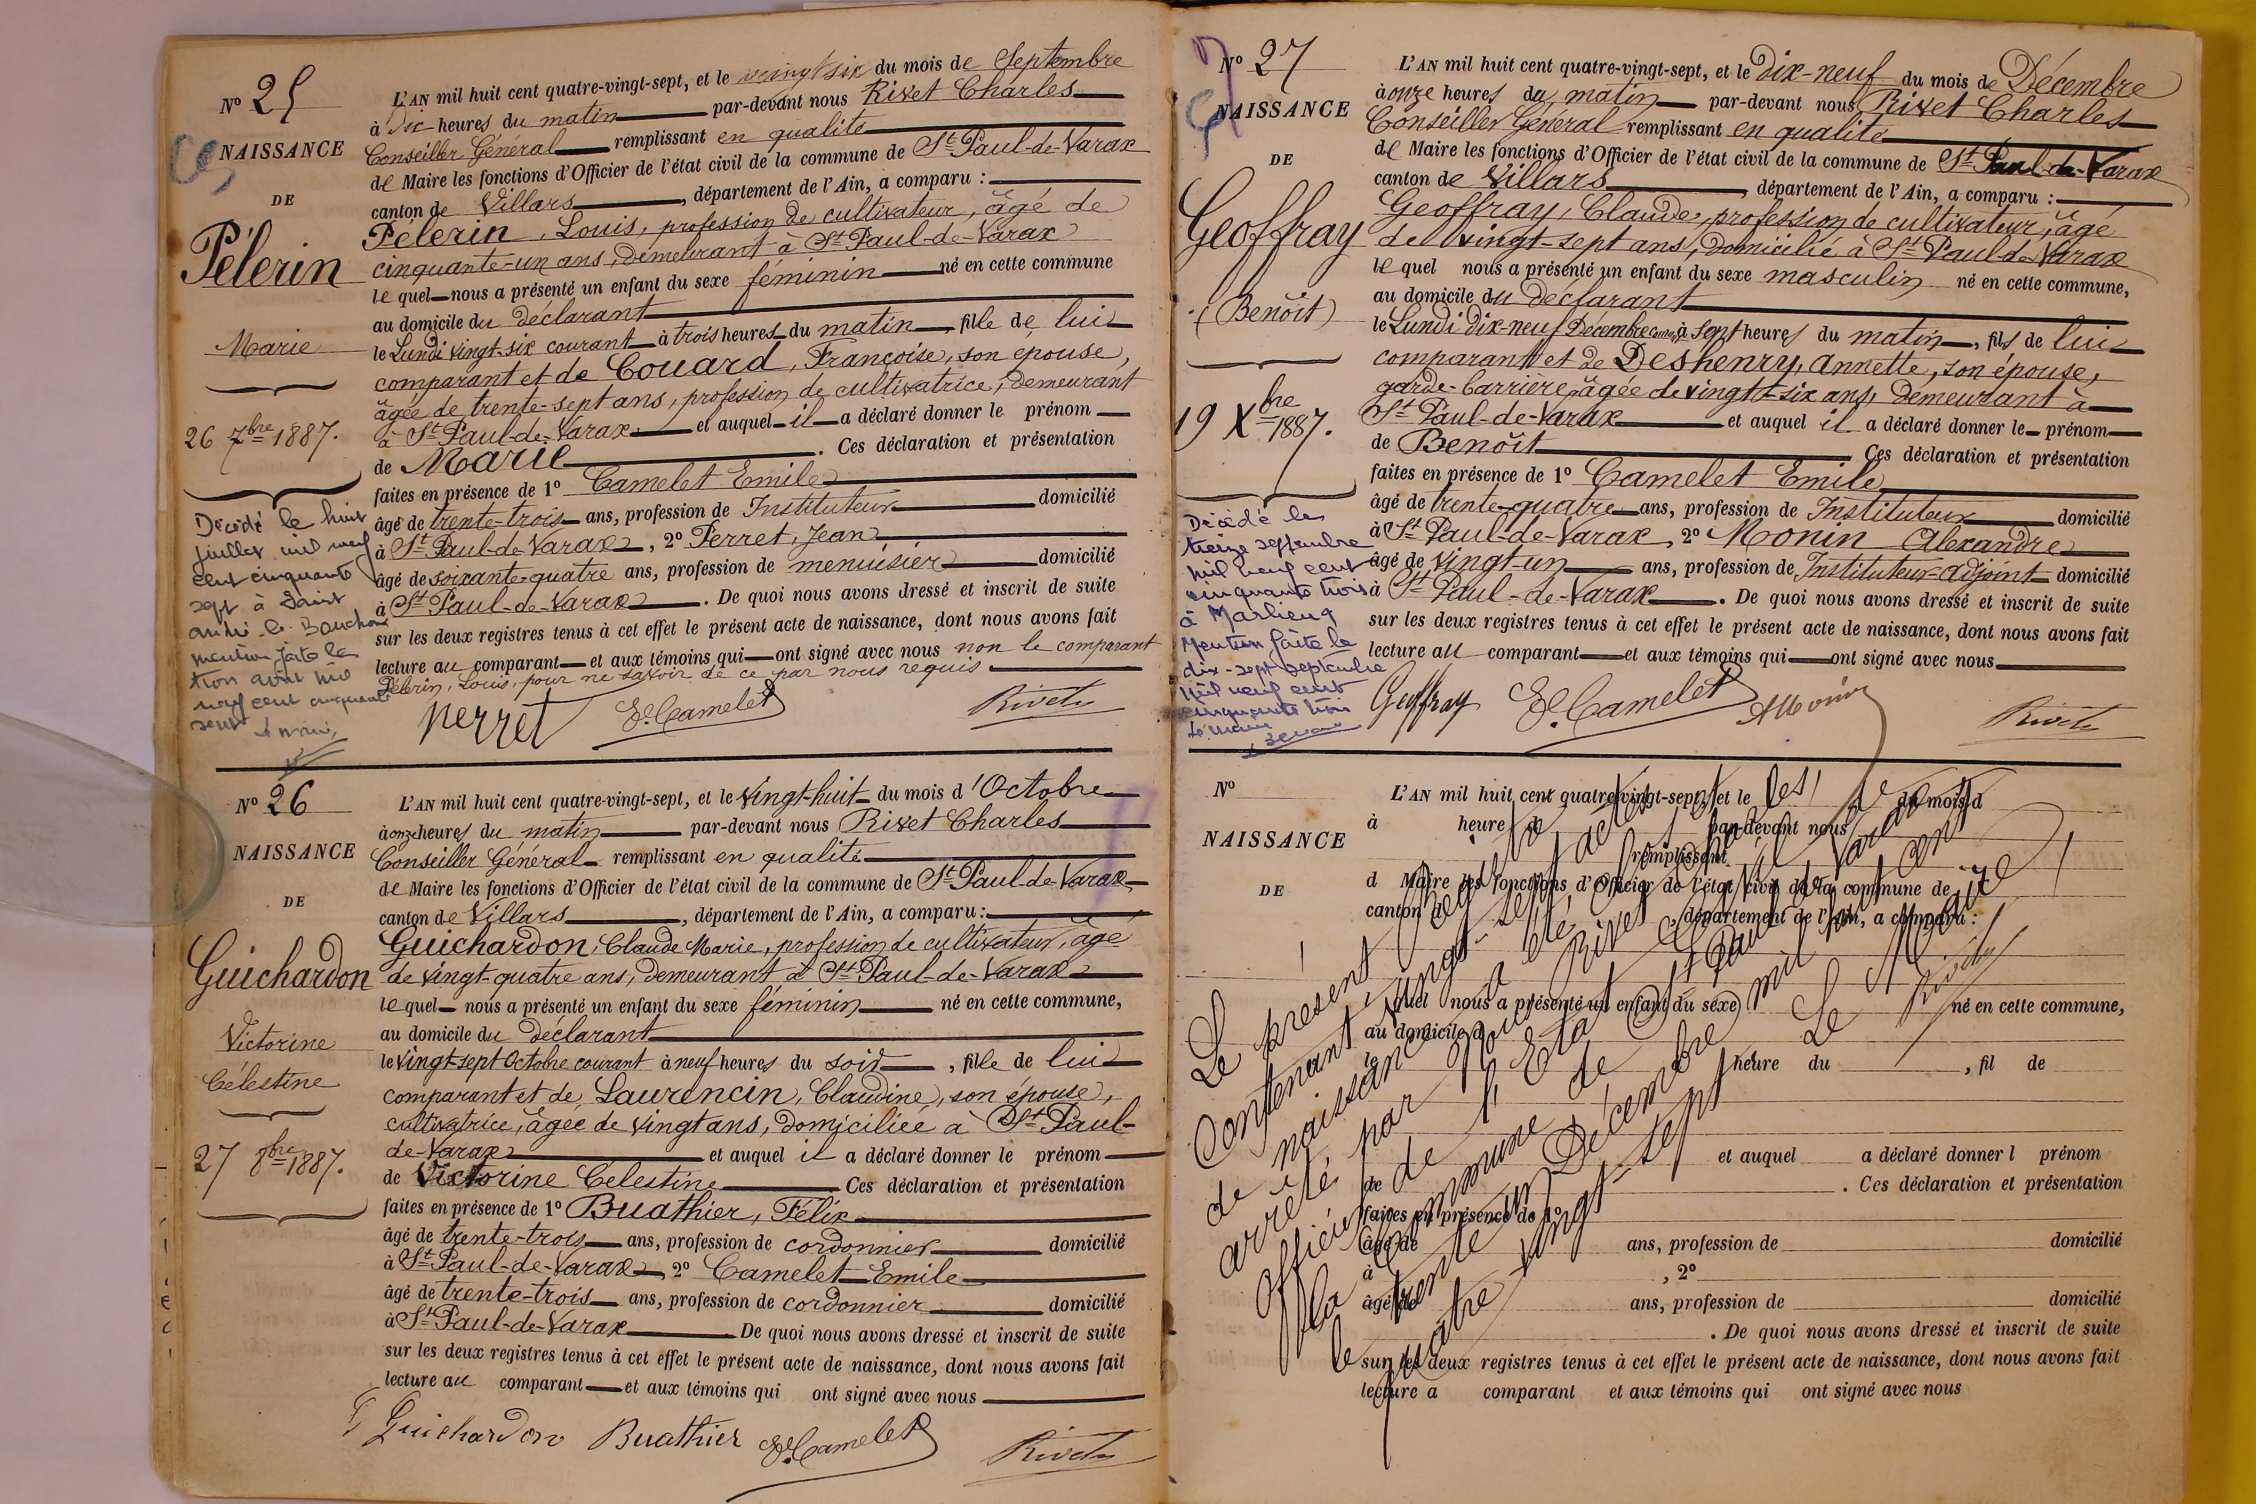 N° 25
NAISSANCE
DE
Pélerin
Marie
26 7bre 1887.
Décédé le huit
juillet mil neuf
cent cinquante
sept à Saint
André-le-Bouchoux
mention faite le
août mil
neuf cent cinquante
sept
L'AN mil huit cent quatre-vingt-sept, et le vingt six du mois de Septembre
à dix heures du matin par-devant nous Rivet Charles
Conseiller Général remplissant en qualité
de Maire les fonctions d'Officier de l'état civil de la commune de St Paul-de-Varax
canton de Villars, département de l'Ain, a comparu :
Pélerin, Louis, profession de cultivateur, âgé de
cinquante-un ans, demeurant à St Paul-de-Varax
lequel nous a présenté un enfant du sexe féminin né en cette commune
au domicile du déclarant
le Lundi vingt-six courant à trois heures du matin, fille de lui
comparant et de Couard, Françoise, son épouse,
âgée de trente-sept ans, profession de cultivatrice, demeurant
à St Paul-de-Varax et auquel il a déclaré donner le prénom
de Marie. Ces déclaration et présentation
faites en présence de 1° Camelet Emile
âgé de trente-trois ans, profession de Instituteur domicilié
à St Paul-de-Varax, 2° Perret, Jean
âgé de soixante-quatre ans, profession de menuisier domicilié
à St Paul-de-Varax. De quoi nous avons dressé et inscrit de suite
sur les deux registres tenus à cet effet le présent acte de naissance, dont nous avons fait
lecture au comparant et aux témoins qui ont signé avec nous non le comparant
Pélerin, Louis, pour ne savoir de ce par nous requis
Perret E. Camelet Rivet
N° 26
NAISSANCE
DE
Guichardon
Victorine
Célestine
27 8bre 1887.
L'AN mil huit cent quatre-vingt-sept, et le vingt-huit du mois d'Octobre
à onze heures du matin par-devant nous Rivet Charles
Conseiller Général remplissant en qualité
de Maire les fonctions d'Officier de l'état civil de la commune de St Paul-de-Varax
canton de Villars, département de l'Ain, a comparu :
Guichardon, Claude Marie, profession de cultivateur, âgé
de vingt-quatre ans, demeurant à St Paul-de-Varax
lequel nous a présenté un enfant du sexe féminin né en cette commune,
au domicile du déclarant
le vingt-sept Octobre courant à neuf heures du soir, fille de lui
comparant et de Laurencin, Claudine, son épouse,
cultivatrice, âgée de vingt ans, domiciliée à St Paul-
de-Varax et auquel il a déclaré donner le prénom
de Victorine Celestine Ces déclaration et présentation
faites en présence de 1° Buathier, Félix
âgé de trente-trois ans, profession de cordonnier domicilié
à St Paul-de-Varax, 2° Camelet Emile
âgé de trente-trois ans, profession de cordonnier domicilié
à St Paul-de-Varax De quoi nous avons dressé et inscrit de suite
sur les deux registres tenus à cet effet le présent acte de naissance, dont nous avons fait
lecture au comparant et aux témoins qui ont signé avec nous
Guichardon Buathier E. Camelet Rivet
N° 27
NAISSANCE
DE
Geoffray
(Benoît)
19 Xbre 1887.
Décédé le
treize septembre
mil neuf cent
cinquante trois
à Marlieux
Mention faite le
dix-sept septembre
mil neuf cent
cinquante trois
Le Maire
L'AN mil huit cent quatre-vingt-sept, et le dix-neuf du mois de Décembre
à onze heures du matin par-devant nous Rivet Charles
Conseiller Général remplissant en qualité
de Maire les fonctions d'Officier de l'état civil de la commune de St Paul-de-Varax
canton de Villars, département de l'Ain, a comparu :
Geoffray, Claude, profession de cultivateur, âgé
de vingt-sept ans, domicilié à St Paul-de-Varax
lequel nous a présenté un enfant du sexe masculin né en cette commune,
au domicile du déclarant
le Lundi dix-neuf Décembre à sept heures du matin, fils de lui
comparant et de Deshenry, Annette, son épouse,
garde-barrière, âgée de vingt-six ans, demeurant à
St Paul-de-Varax et auquel il a déclaré donner le prénom
de Benoît Ces déclaration et présentation
faites en présence de 1° Camelet Emile
âgé de trente-quatre ans, profession de Instituteur domicilié
à St Paul-de-Varax, 2° Monin Alexandre
âgé de vingt-un ans, profession de Instituteur-adjoint domicilié
à St Paul-de-Varax. De quoi nous avons dressé et inscrit de suite
sur les deux registres tenus à cet effet le présent acte de naissance, dont nous avons fait
lecture au comparant et aux témoins qui ont signé avec nous
Geoffray E. Camelet A Monin Rivet
N°
NAISSANCE
DE
L'AN mil huit cent quatre-vingt-sept, et le du mois d
à heure d par-devant nous
remplissant
d Maire les fonctions d'Officier de l'état civil de la commune de
canton d, département de l'Ain, a comparu :
quel nous a présenté un enfant du sexe né en cette commune,
au domicile d
le heure du, fil de
et auquel a déclaré donner l prénom
de. Ces déclaration et présentation
faites en présence de 1°
âgé de ans, profession de domicilié
à, 2°
âgé de ans, profession de domicilié
. De quoi nous avons dressé et inscrit de suite
sur les deux registres tenus à cet effet le présent acte de naissance, dont nous avons fait
lecture a comparant et aux témoins qui ont signé avec nous
Le présent Registre
Contenant vingt-sept actes
de naissance a été
arrêté par nous Rivet Charles
Officier de l'Etat Civil de
la Commune de St Paul de Varax
le trente un Décembre mil huit cent
quatre vingt-sept Le Maire
Rivet